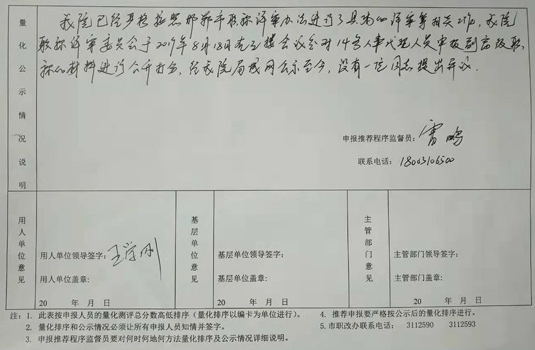 量化公示情况说明
我院已经严格按照邯郸市职称评审办法进行了具体的评审等相关活动，我院
职称评审委员会于2019年8月18日在三楼会议室对14名人事代理人员申报副高级职
称的材料进行公开打分，经我院局域网公示至今，没有一位同志提出异议。
申报推荐程序监督员：雷鸣
联系电话：18003106500
用人单位意见
用人单位领导签字：王学刚
用人单位盖章：
20 年 月 日
基层单位意见
基层单位领导签字：
基层单位盖章：
20 年 月 日
主管部门意见
主管部门领导签字：
主管部门盖章：
20 年 月 日
注：1. 此表按申报人员的量化测评总分数高低排序（量化排序以编卡为单位进行）。
2. 量化排序和公示情况必须让所有申报人员知情并签字。
3. 申报推荐程序监督员要对何时何地何方法量化排序及公示情况详细说明。
4. 推荐申报要严格按公示后的量化排序进行。
5.市职改办联系电话： 3112590 3112593